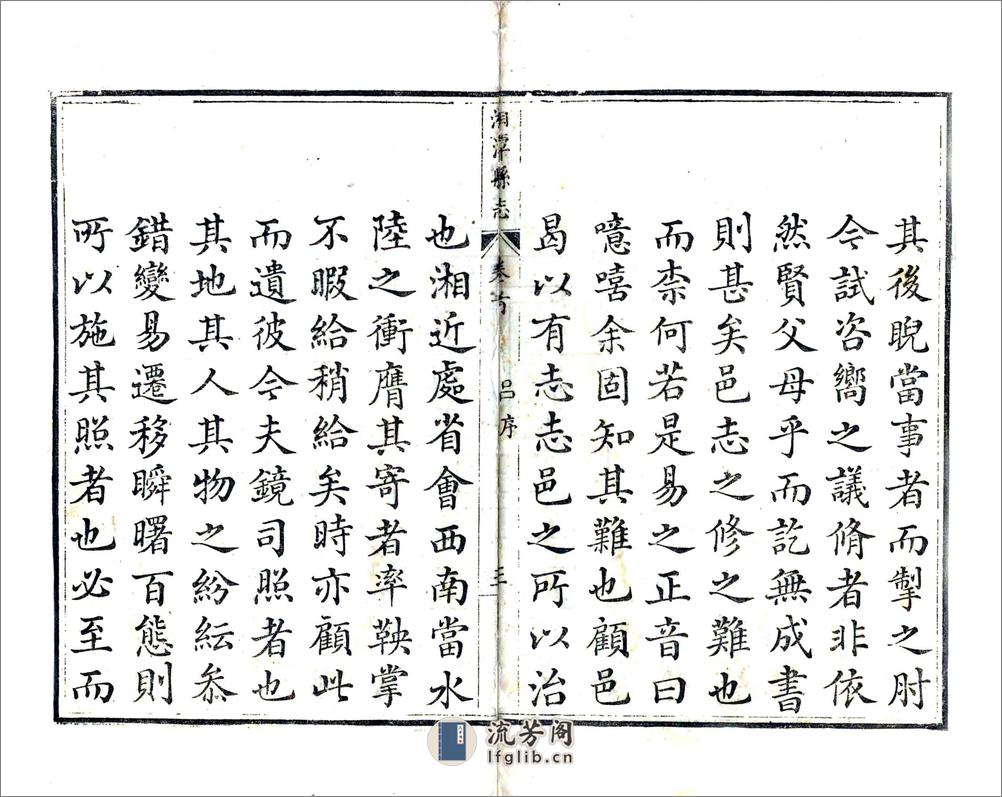 其後睨當事者而掣之肘
今試咨嚮之議脩者非依
然賢父母乎而訖無成書
則甚矣邑志之修之難也
而柰何若是易之正音曰
噫嘻余固知其難也顧邑
曷以有志志邑之所以治
湘潭縣志
卷首
呂序
三
也湘近處省會西南當水
陸之衝膺其寄者率鞅掌
不暇給稍給矣時亦顧此
而遺彼今夫鏡司照者也
其地其人其物之紛紜叅
錯變易遷移瞬曙百態則
所以施其照者也必至而
流芳阁
lfglib.cn